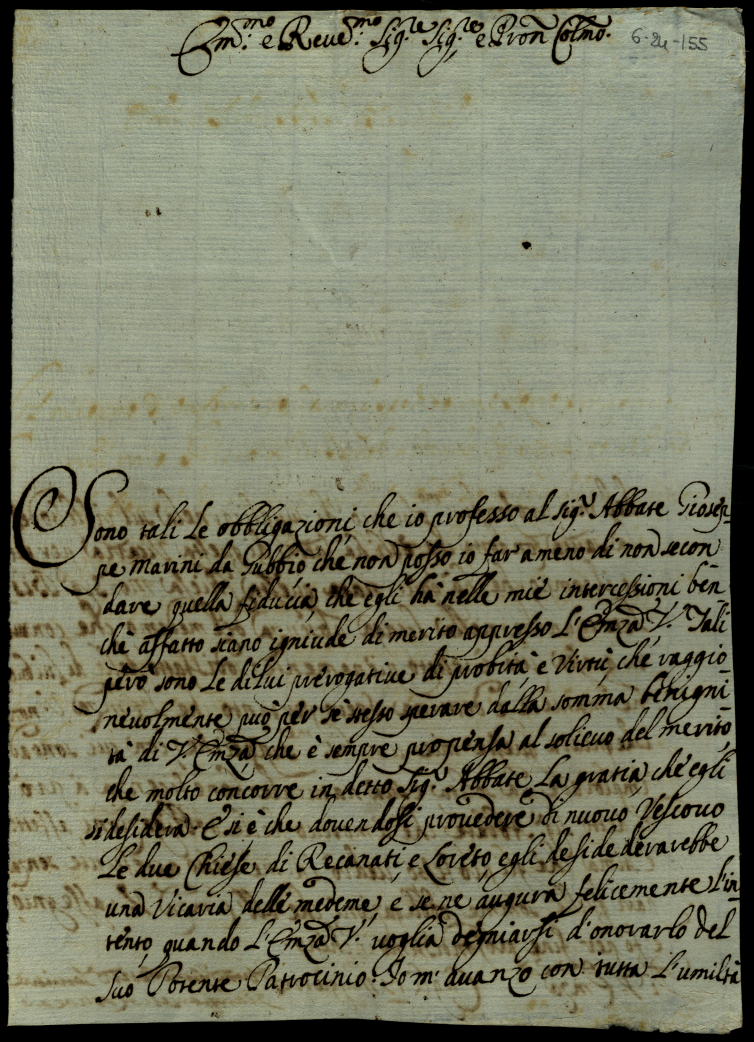 Em.mo e Reve.mo Sig.re Sig.re e Pron Colmo.
6-24-155
Sono tali le obbligazioni, che io professo al Sig.r Abbate Giosep-
pe Marini da Gubbio che non posso io far ameno di non secon
dare quella fiducia, che egli hà nelle mie intercessioni ben-
chè affatto siano igniude di merito appresso L'Emza V. Tali
però sono le dilui prerogative di probità, e Virtù, che raggio-
nevolmente può per sè stesso sperare dalla somma benigni
tà di V. Emza, che è sempre propensa al solievo del merito,
che molto concorre in detto Sig.r Abbate La gratia, che egli
si desidera. E si è che dovendosi provedere di nuovo Vescovo
Le due Chiese di Recanati, e Loreto, egli desidedererebbe
una Vicaria delle medeme, e se ne augura felicemente l'in-
tento, quando L'Emza V. voglia degniarsi d'onorarlo del
suo Potente Patrocinio. Io m' avanzo con tutta L'umiltà